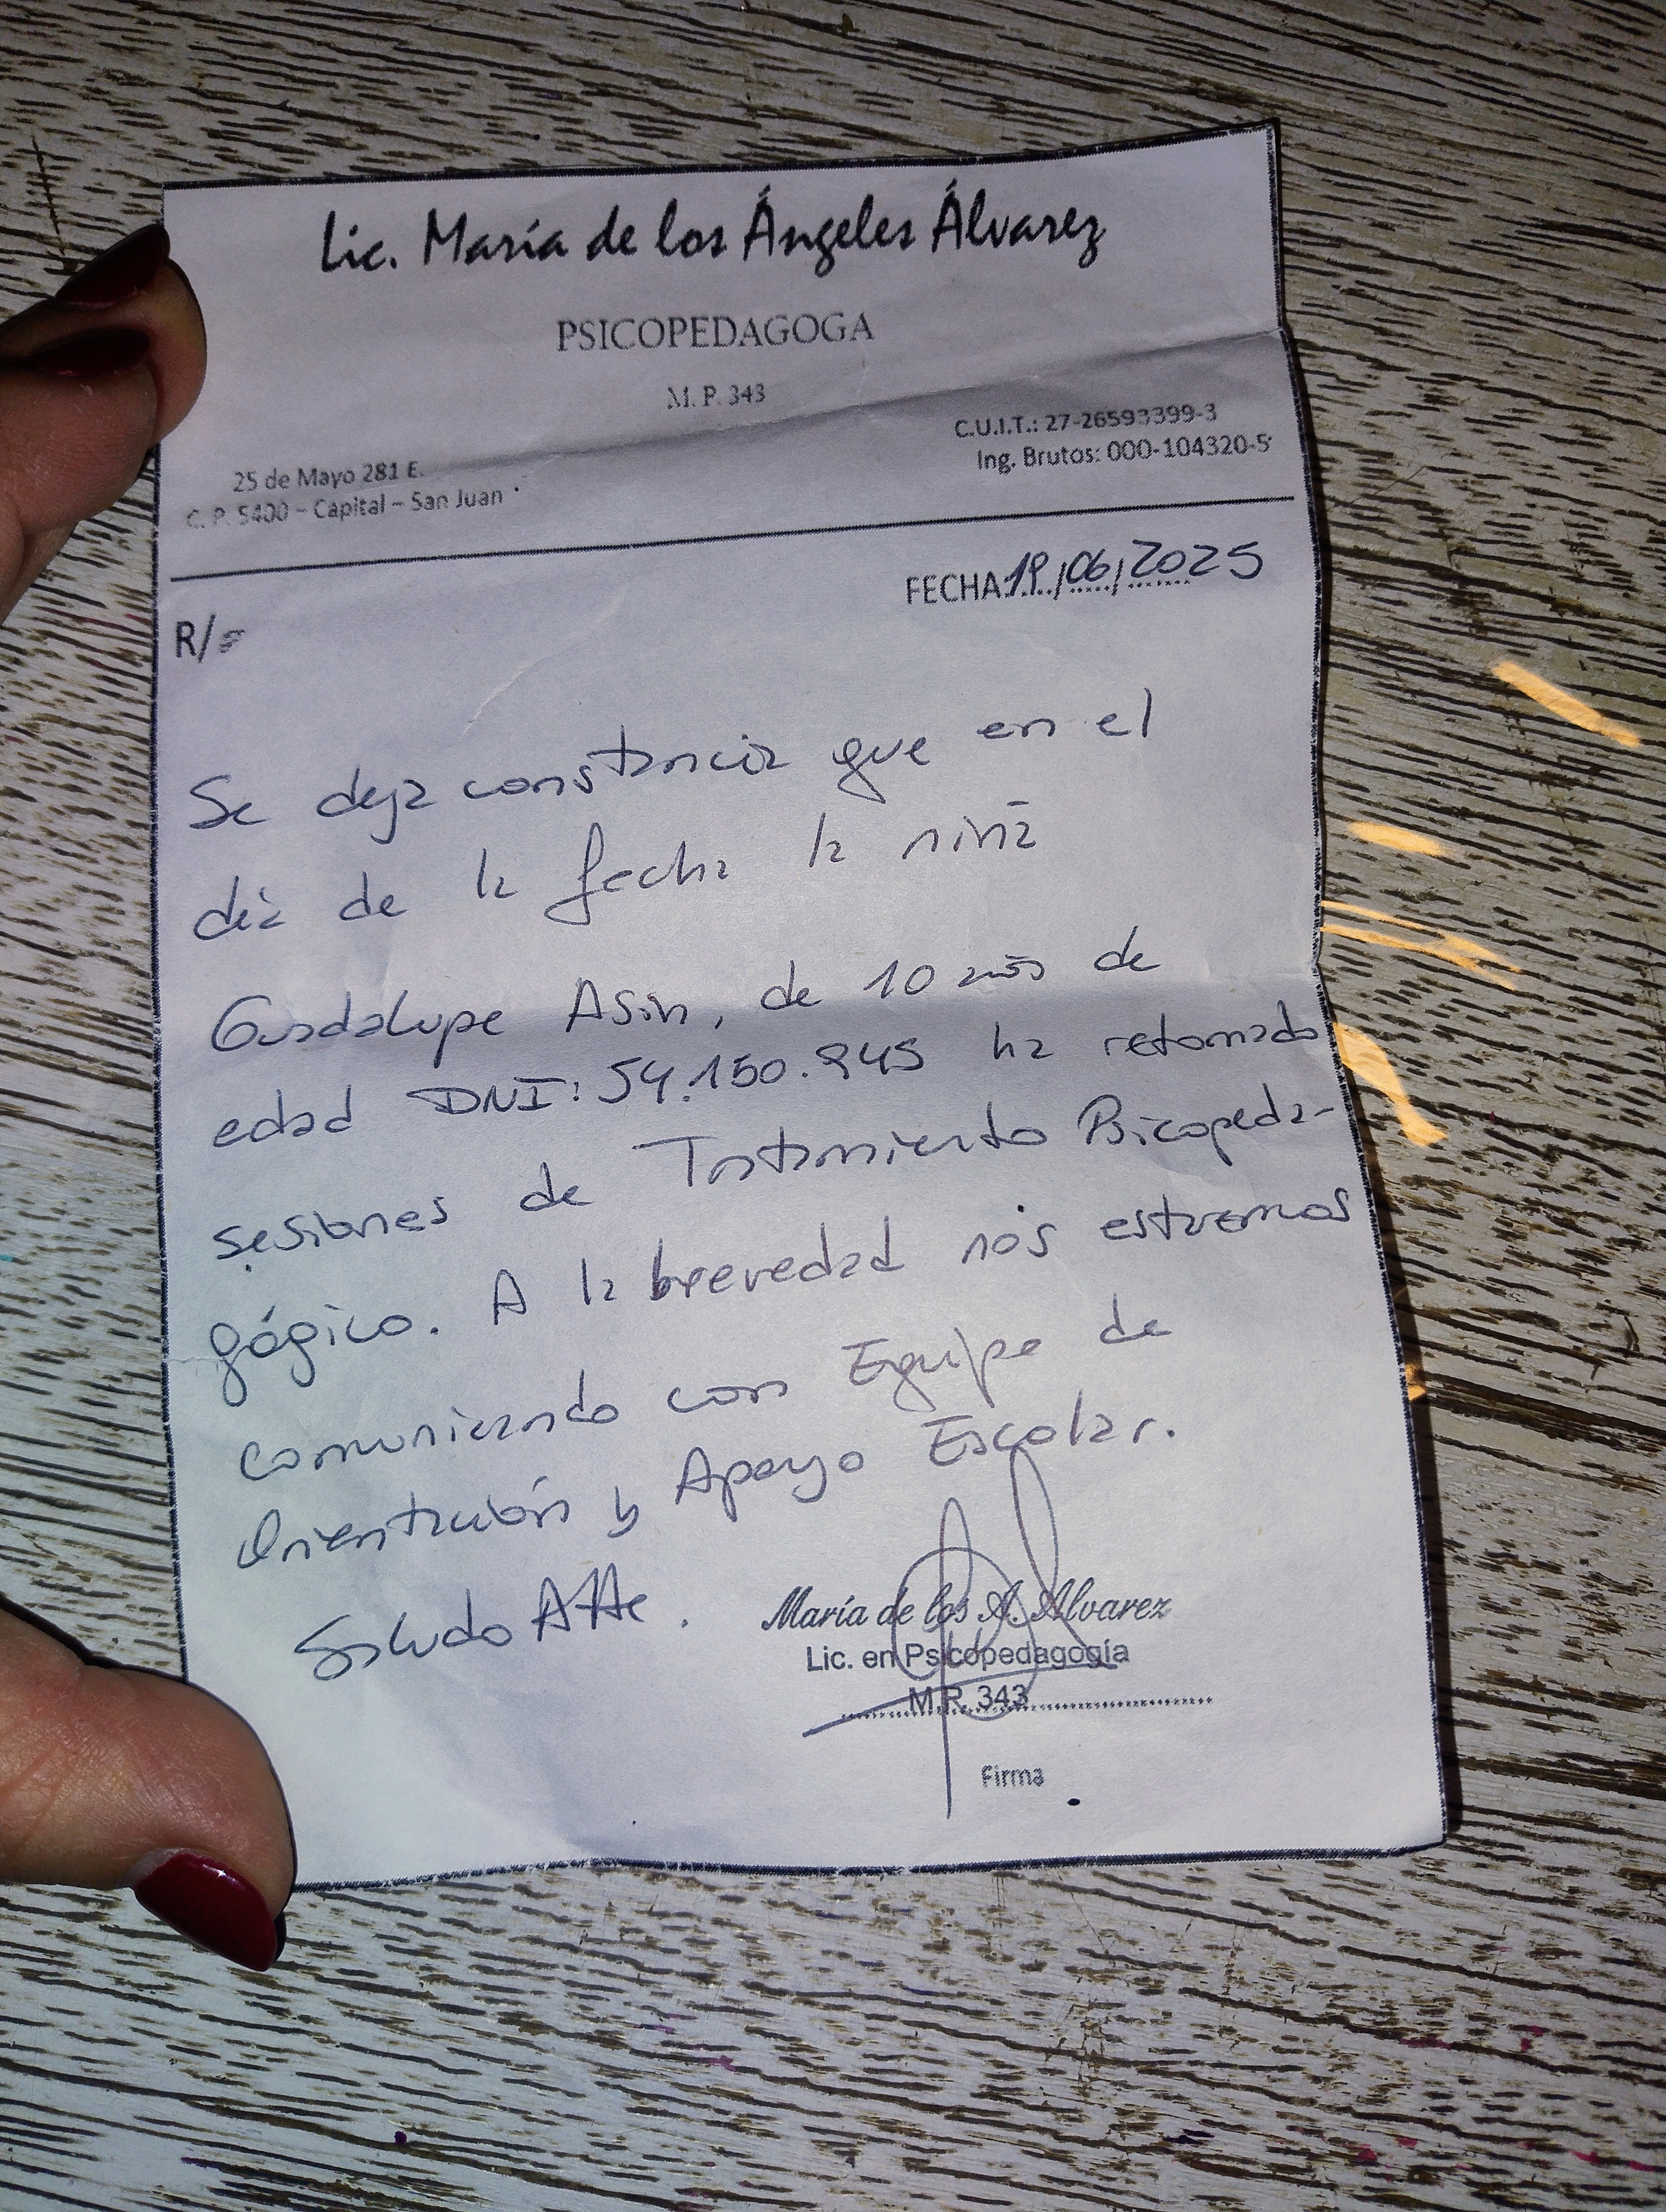 Lic. María de los Ángeles Álvarez
PSICOPEDAGOGA
M. P. 343
25 de Mayo 281 E.
C. P. 5400 – Capital – San Juan
C.U.I.T.: 27-26593399-3
Ing. Brutos: 000-104320-5
FECHA 19/06/2025
R/
Se deja constancia que en el
día de la fecha la niña
Guadalupe Asin, de 10 años de
edad DNI: 54.150.945 ha retomado
sesiones de Tratamiento Psicopeda-
gógico. A la brevedad nos estaremos
comunicando con Equipo de
Orientación y Apoyo Escolar.
Saludo Atte.
María de los A. Alvarez
Lic. en Psicopedagogía
M.P. 343
Firma